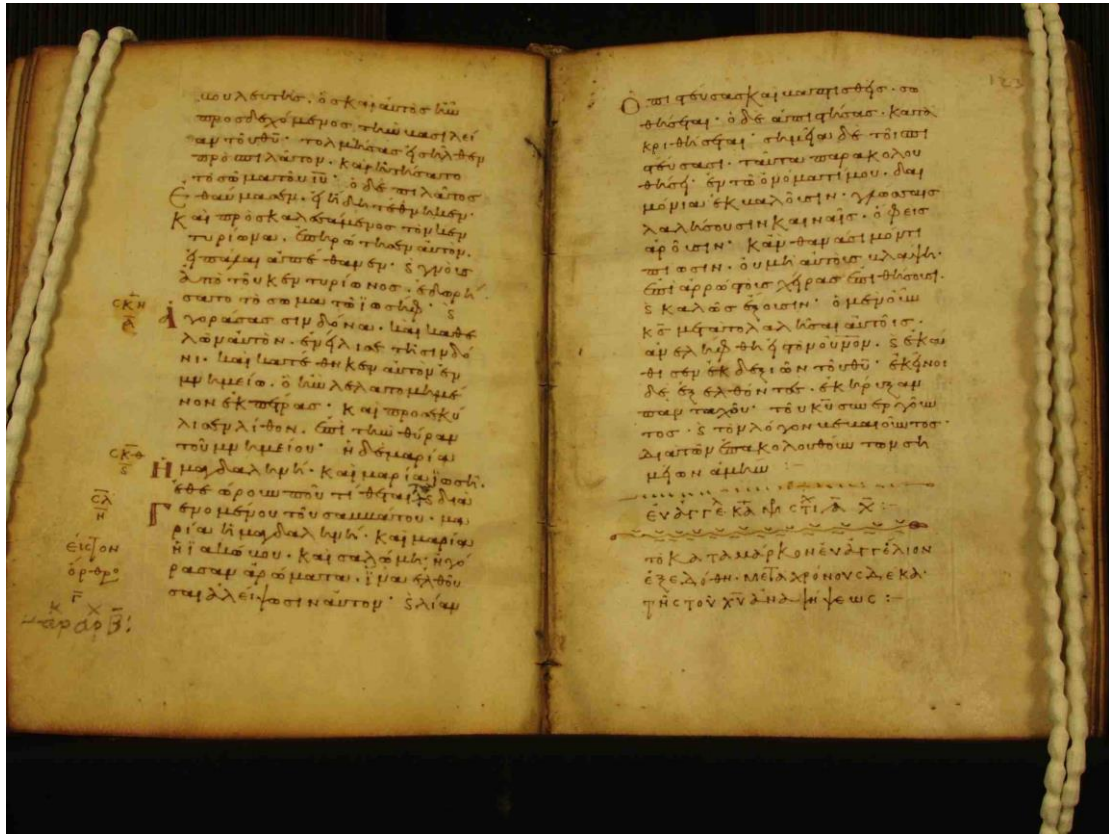 βουλευτῆς. ὃς καὶ αὐτὸς ἦν
προσδεχόμενος τὴν βασιλεί
αν τοῦ θ̅υ̅· τολμήσας εἰσῆλθεν
πρὸς πιλάτον. καὶ ἠτήσατο
τὸ σῶμα τοῦ ι̅υ̅· ὁ δὲ πιλάτος
ἐθαύμασεν. εἰ ἤδη τέθνηκεν·
Καὶ προσκαλεσάμενος τὸν κεν
τυρίωνα. ἐπηρώτησεν αὐτὸν.
εἰ πάλαι ἀπέθανεν· ϗ γνοὺς
ἀπὸ τοῦ κεντυρίωνος. ἐδωρή
σατο τὸ σῶμα τῶ ἰωσήφ· ϗ
ἀγοράσας σινδόνα. καὶ καθε
λὼν αὐτὸν. ἐνείλισε τῆ σινδό
νι. καὶ κατέθηκεν αὐτὸν ἐν
μνημείω. ὃ ἦν λελατομημέ
νον ἐκ πέτρας. καὶ προσεκύ
λισεν λίθον. ἐπὶ τὴν θύραν
τοῦ μνημείου· ἡ δὲ μαρία
Ἡ μαγδαληνὴ. καὶ μαρία ἰωσῆ.
ἐθεώρουν ποῦ τίθεται· ϗ δια
Γενομένου τοῦ σαββάτου. μα
ρία ἡ μαγδαληνὴ. καὶ μαρία
ἡ ἰακώβου. καὶ σαλώμη. ἠγό
ρασαν ἀρώματα. ἵνα ἐλθοῦ
σαι ἀλείψωσιν αὐτὸν· ϗ λίαν
123
Ὁ πιστεύσας καὶ βαπτισθεὶς. σω
θήσεται· ὁ δὲ ἀπιστήσας. κατα
κριθήσεται· σημεῖα δὲ τοῖς πι
στεύσασι. ταῦτα παρακολου
θήσει· ἐν τῶ ὀνόματί μου. δαι
μόνια ἐκβαλοῦσιν. γλώσσαις
λαλήσουσιν καιναῖς. ὄφεις
ἀροῦσιν· κἂν θανάσιμόν τι
πίωσιν. οὐ μὴ αὐτοὺς βλάψη.
ἐπὶ ἀρρώστους χεῖρας ἐπιθήσουσι.
ϗ καλῶς ἕξουσιν· ὁ μὲν οὖν
κ̅ς̅ μετὰ τὸ λαλῆσαι αὐτοῖς.
ἀνελήφθη εἰς τὸν οὐ̅ν̅ο̅ν̅. ϗ ἐκά
θισεν ἐκ δεξιῶν τοῦ θ̅υ̅· ἐκεῖνοι
δὲ ἐξελθόντες. ἐκήρυξαν
πανταχοῦ· τοῦ κ̅υ̅ συνεργοῦν
τος. ϗ τὸν λόγον βεβαιοῦντος.
διὰ τῶν ἐπακολουθούντων ση
μείων ἀμήν :–
τὸ κατὰ μάρκον εὐαγγέλιον
ἐξεδόθη. μετὰ χρόνους δέκα·
τῆς τοῦ χ̅υ̅ ἀναλήψεως :–